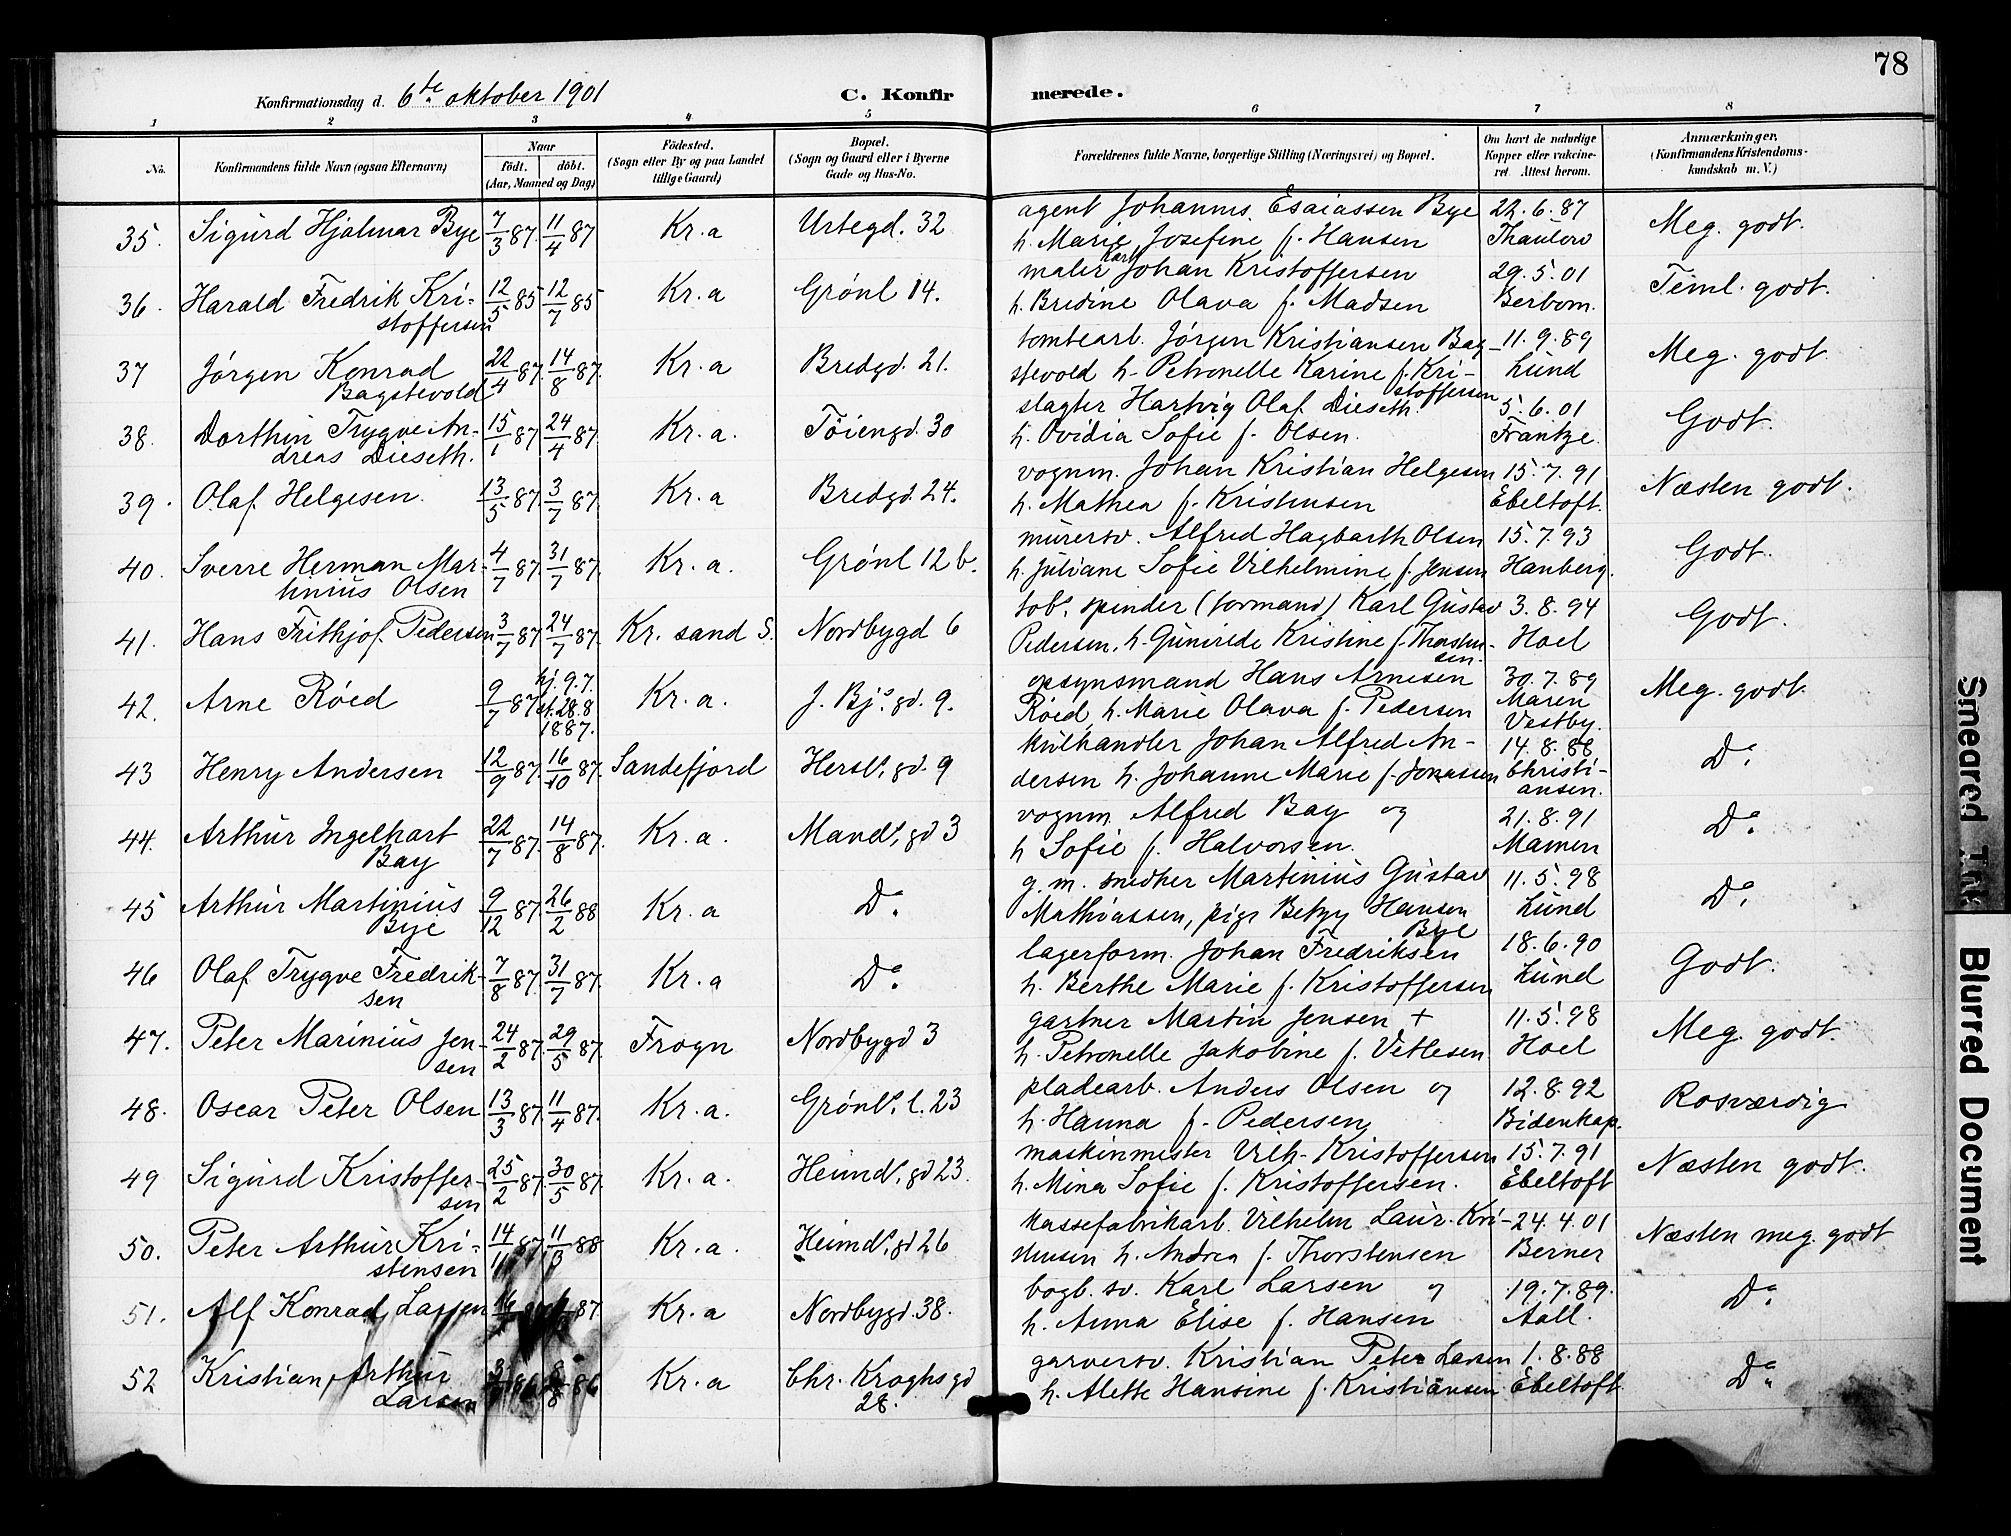 78
Konfirmationsdag d. 6te oktober 1901
C. Konfirmerede.
1 2 3 4 5 6 7 8
No. Konfirmandens fulde Navn (ogsaa Efternavn) Naar født. døbt. (Aar, Maaned og Dag) Fødested. (Sogn eller By og paa Landet tillige Gaard) Bopæl. (Sogn og Gaard eller i Byerne Gade og Hus-No. Forældrenes fulde Navne, borgerlige Stilling (Næringsvei) og Bopæl. Om havt de naturlige Kopper eller vakcineret. Attest herom. Anmærkninger. (Konfirmandens Kristendomskundskab m. V.)
35. Sigurd Hjalmar Bye 7/3 87. 11/4 87 Kr.a Urtegd. 32 agent Johannes Esaiassen Bye 22.6.87 Meg. godt.
h. Marie Josefine f. Hansen Thaulow
36. Harald Fredrik Kri- 12/5 85 12/7 85 Kr.a Grønl 14. maler Karl Johan Kristoffersen 29.5.01 Teml. godt.
stoffersen h. Bredine Olava f. Madsen Berbom.
37 Jørgen Konrad 22/4 87. 14/8 87. Kr.a Bredgd. 21. tomtearb. Jørgen Kristiansen Bag- 11.9.89 Meg. godt
Bagstevold stevold h. Petronelle Karine f. Kri- Lund
stoffersen
38. Dorthin Trygve An- 15/1 87 24/4 87. Kr.a. Tøiengd. 30 slagter Hartvig Olaf Dieseth. 5.6.01 Godt.
dreas Dieseth. h. Ovidia Sofie f. Olsen. Frantze.
39. Olaf Helgesen. 13/5 87. 3/7 87. Kr.a Bredgd. 24. vognm. Johan Kristian Helgesen 15.7.91 Næsten godt.
h. Mathea f. Kristensen Ebeltoft.
40. Sverre Herman Mar- 4/7 87. 31/7 87. Kr.a. Grønl 12 b. murersv. Alfred Hagbarth Olsen 15.7.93 Godt.
tinius Olsen h. Juliane Sofie Vilhelmine f. Jensen Hanberg.
41. Hans Frithjof Pedersen 3/7 87. 24/7 87. Kr. sand S. Nordbygd 6 tob. spinder (formand) Karl Gustav 3.8.94 Godt.
Pedersen, h. Guniride Kristine f. Thorsten- Hoel
sen.
42. Arne Røed 9/7 87 hj. 9.7. st. 28.8 1887. Kr.a. J. Bj.s gd. 9. opsynsmand Hans Arnesen 30.7.89 Meg. godt.
Røed, h. Marie Olava f. Pedersen Maren Vestby.
43 Henry Andersen 12/9 87. 16/10 87. Sandefjord Hersl. gd. 9 kulhandler Johan Alfred An- 14.8.88 Do.
dersen h. Johanne Marie f. Jonassen Christi-
ansen.
44. Arthur Ingelhart 22/7 87. 14/8 87. Kr.a. Mandl. gd 3 vognm. Alfred Bay og 21.8.91 Do.
Bay h Sofie f. Halvorsen. Mamen
45 Arthur Martinius 9/12 87. 26/2 88 Kr.a Do. g. m. snedker Martinius Gustav 11.5.98 Do.
Bye Mathiassen, pige Betzy Hansen Lund
Bye
46 Olaf Trygve Fredrik- 7/8 87. 31/7 87. Kr.a Do. lagerform. Johan Fredriksen 18.6.90 Godt.
sen h. Berthe Marie f. Kristoffersen Lund
47. Peter Marinius Jen- 24/2 87. 29/5 87. Frogn Nordbygd 3 gartner Martin Jensen + 11.5.98 Meg. godt.
sen h. Petronelle Jakobine f. Vetlesen Hoel
48. Oscar Peter Olsen 13/3 87. 11/4 87. Kr.a. Grønl. l. 23 pladearb. Anders Olsen og 12.8.92 Rosværdig
h. Hanna f. Pedersen Bidenkap.
49 Sigurd Kristoffer- 25/2 87. 30/5 87. Kr.a. Heimd. gd 23. maskinmester Vilh. Kristoffersen 15.7.91 Næsten godt.
sen h. Mina Sofie f. Kristoffersen. Ebeltoft
50. Peter Arthur Kri- 14/11 87. 11/3 88 Kr.a. Heimd. gd 26 kassefabrikarb. Vilhelm Laur. Kri- 24.4.01 Næsten meg. godt
stensen stensen h. Andrea f. Thorstensen Berner
51. Alf Konrad Larsen 87 Kr.a Nordbygd. 38. bogb. sv. Karl Larsen og 19.7.89. Do.
h. Anna Elise f. Hansen Aall.
52 Kristian Arthur 86 8/8 86 Kr.a Chr. Kroghs gd garversv. Kristian Peter Larsen 1.8.88 Do.
Larsen 28. h. Alette Hansine f. Kristiansen Ebeltoft
Smeared Ink
Blurred Document